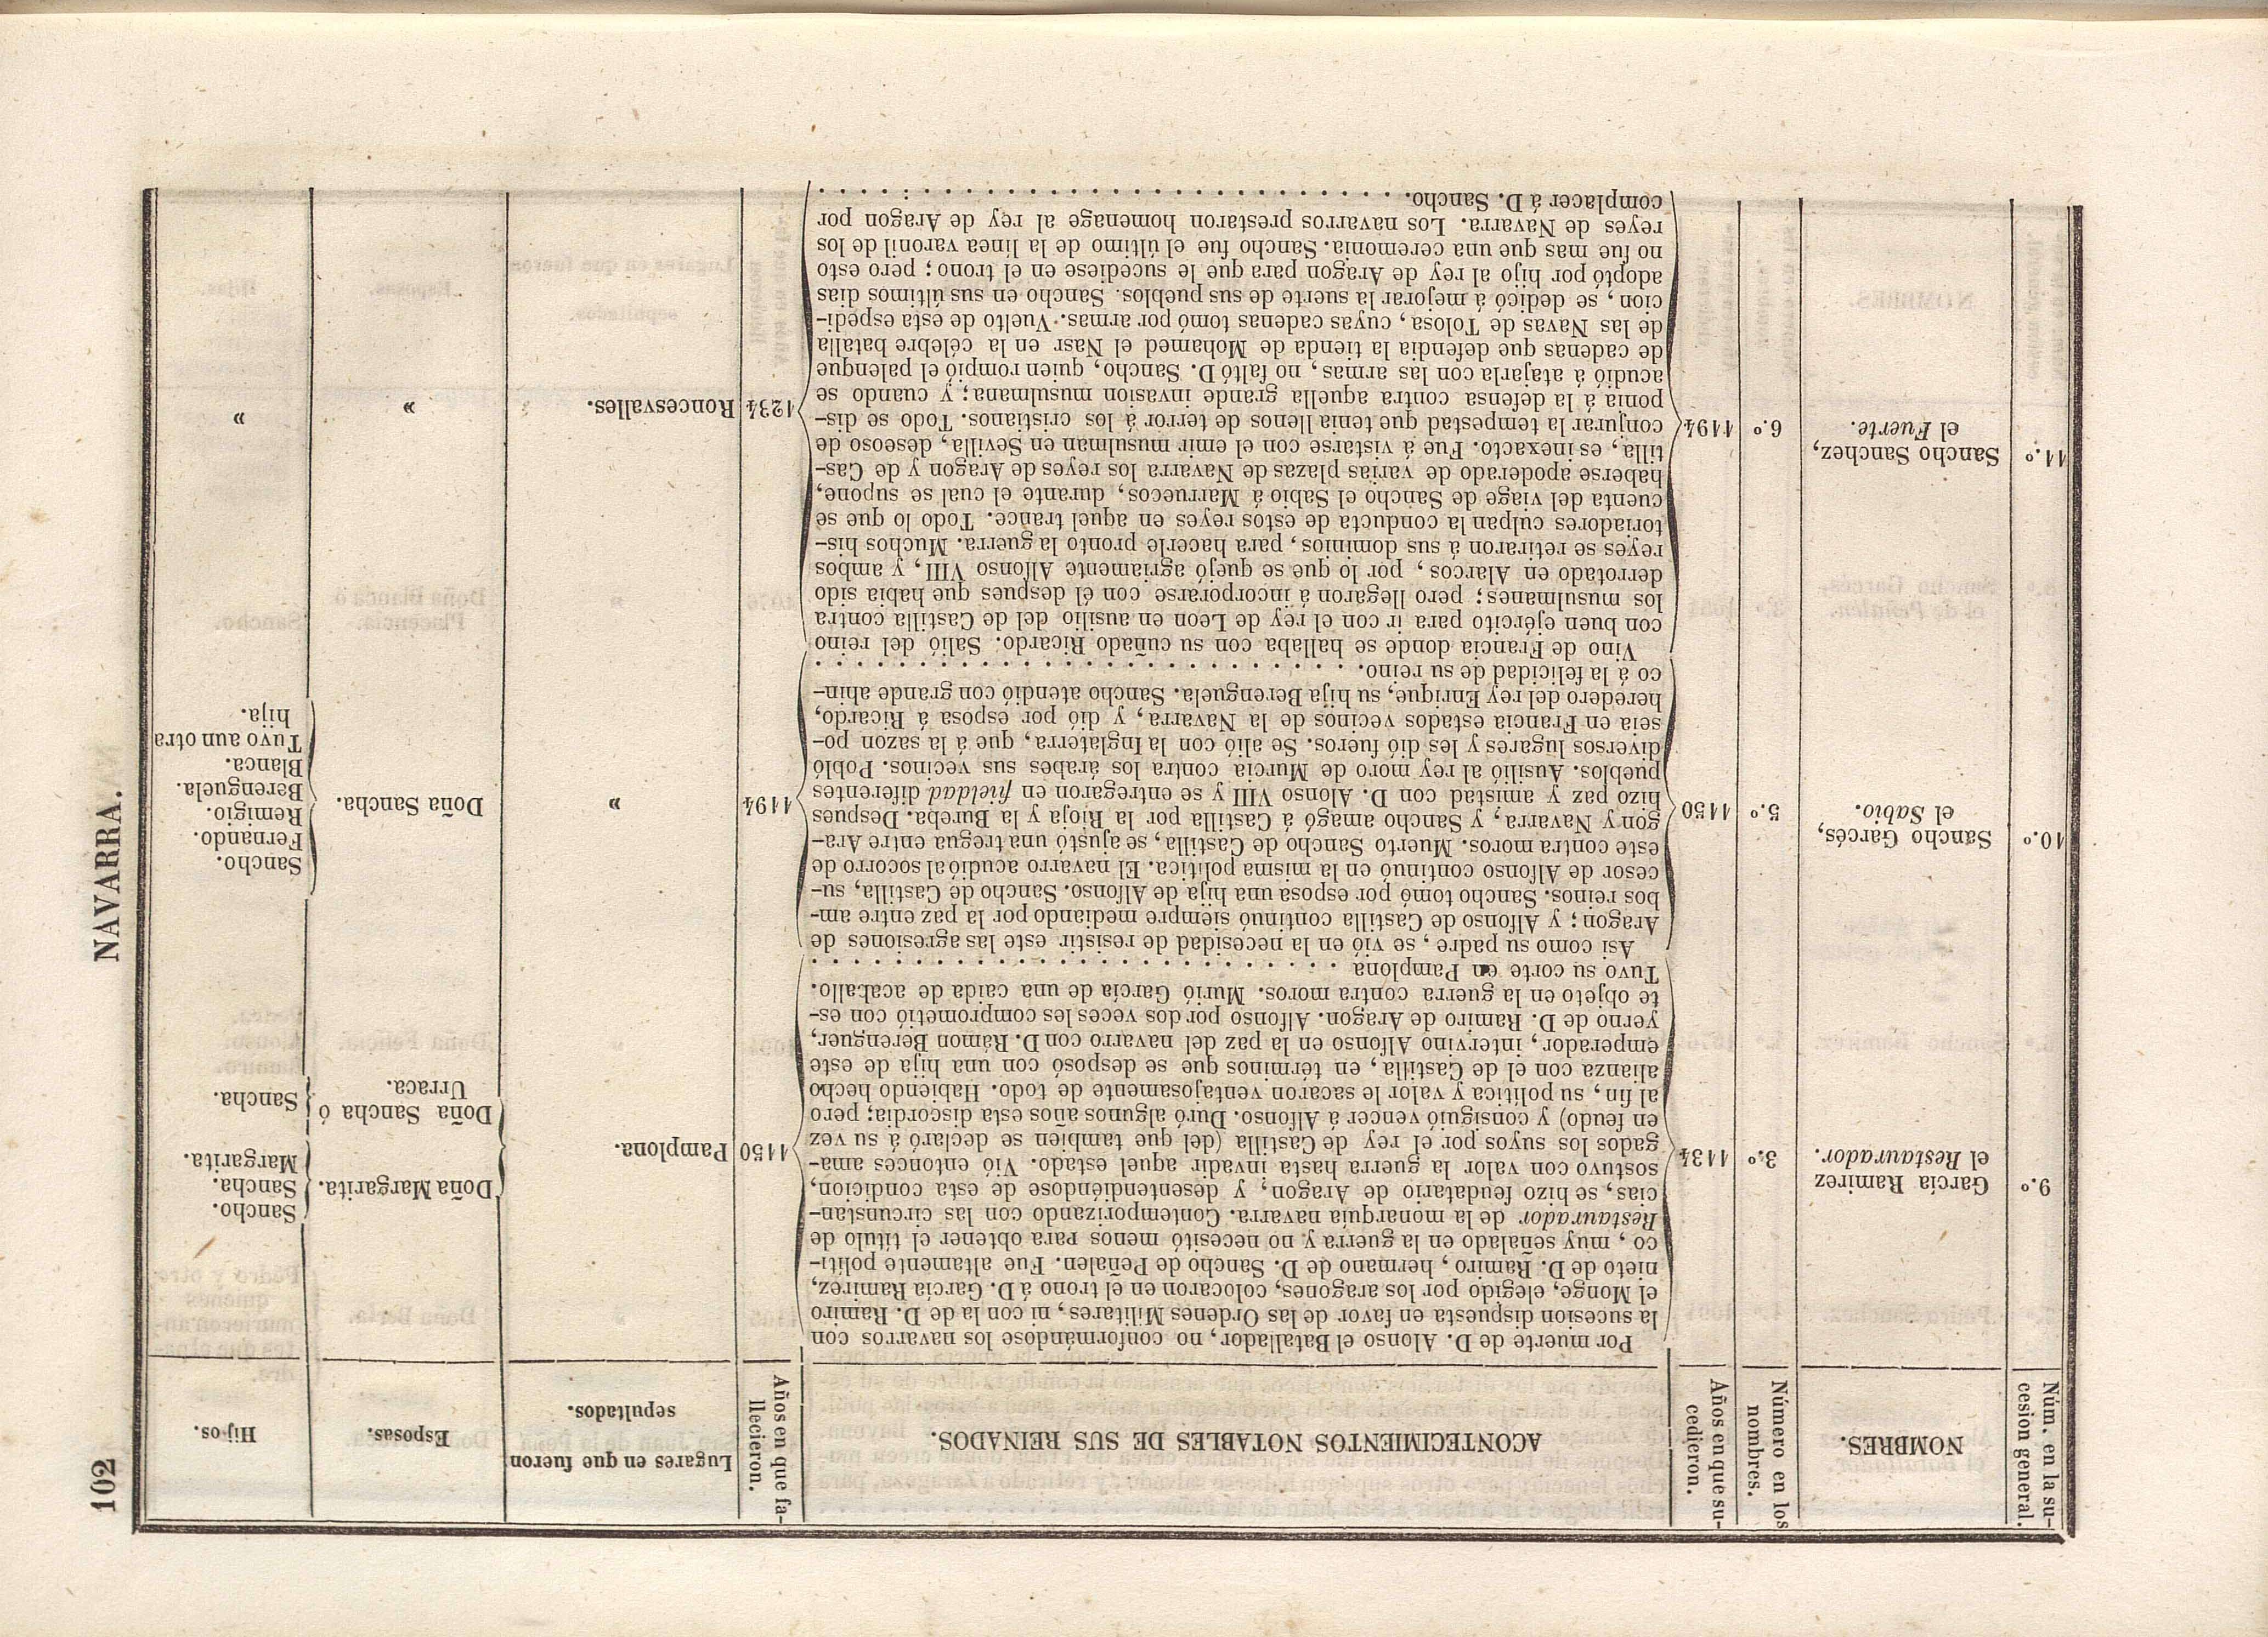 102
NAVARRA.
Núm. en la su-
cesion general.
NOMBRES.
Número en los
nombres.
Años en que su-
cedieron.
ACONTECIMIENTOS NOTABLES DE SUS REINADOS.
Años en que fa-
llecieron.
Lugares en que fueron
sepultados.
Esposas.
Hijos.
9.º
García Ramirez
el Restaurador.
3.º
1134
Por muerte de D. Alonso el Batallador, no conformándose los navarros con
la sucesion dispuesta en favor de las Ordenes Militares, ni con la de D. Ramiro
el Monge, elegido por los aragones, colocaron en el trono á D. García Ramirez,
nieto de D. Ramiro, hermano de D. Sancho de Peñalen. Fue altamente políti-
co, muy señalado en la guerra y no necesitó menos para obtener el título de
Restaurador de la monarquía navarra. Contemporizando con las circunstan-
cias, se hizo feudatario de Aragon; y desentendiéndose de esta condicion,
sostuvo con valor la guerra hasta invadir aquel estado. Vió entonces ama-
gados los suyos por el rey de Castilla (del que tambien se declaró á su vez
en feudo) y consiguió vencer á Alfonso. Duró algunos años esta discordia; pero
al fin, su política y valor le sacaron ventajosamente de todo. Habiendo hecho
alianza con el de Castilla, en términos que se desposó con una hija de este
emperador, intervino Alfonso en la paz del navarro con D. Ramon Berenguer,
yerno de D. Ramiro de Aragon. Alfonso por dos veces les comprometió con es-
te objeto en la guerra contra moros. Murió García de una caida de acaballo.
Tuvo su corte en Pamplona . . . . . . . . . . . . . . . . . . . . . . . . . .
1150
Pamplona.
Doña Margarita.
Sancho.
Sancha.
Margarita.
Doña Sancha ó
Urraca.
Sancha.
10.º
Sancho Garcés,
el Sabio.
5.º
1150
Asi como su padre, se vió en la necesidad de resistir este las agresiones de
Aragon; y Alfonso de Castilla continuó siempre mediando por la paz entre am-
bos reinos. Sancho tomó por esposa una hija de Alfonso. Sancho de Castilla, su-
cesor de Alfonso continuó en la misma política. El navarro acudió al socorro de
este contra moros. Muerto Sancho de Castilla, se ajustó una tregua entre Ara-
gon y Navarra, y Sancho amagó á Castilla por la Rioja y la Bureba. Despues
hizo paz y amistad con D. Alonso VIII y se entregaron en fieldad diferentes
pueblos. Ausilió al rey moro de Murcia contra los árabes sus vecinos. Pobló
diversos lugares y les dió fueros. Se alió con la Inglaterra, que á la sazon po-
seia en Francia estados vecinos de la Navarra, y dió por esposa á Ricardo,
heredero del rey Enrique, su hija Berenguela. Sancho atendió con grande ahin-
co á la felicidad de su reino. . . . . . . . . . . . . . . . . . . . . . . . . .
1194
»
Doña Sancha.
Sancho.
Fernando.
Remigio.
Berenguela.
Blanca.
Tuvo aun otra
hija.
11.º
Sancho Sanchez,
el Fuerte.
6.º
1194
Vino de Francia donde se hallaba con su cuñado Ricardo. Salió del reino
con buen ejército para ir con el rey de Leon en ausilio del de Castilla contra
los musulmanes; pero llegaron á incorporarse con él despues que habia sido
derrotado en Alarcos, por lo que se quejó agriamente Alfonso VIII, y ambos
reyes se retiraron á sus dominios, para hacerle pronto la guerra. Muchos his-
toriadores culpan la conducta de estos reyes en aquel trance. Todo lo que se
cuenta del viage de Sancho el Sabio á Marruecos, durante el cual se supone,
haberse apoderado de varias plazas de Navarra los reyes de Aragon y de Cas-
tilla, es inexacto. Fue á vistarse con el emir musulman en Sevilla, deseoso de
conjurar la tempestad que tenia llenos de terror á los cristianos. Todo se dis-
ponia á la defensa contra aquella grande invasion musulmana; y cuando se
acudió á atajarla con las armas, no faltó D. Sancho, quien rompió el palenque
de cadenas que defendia la tienda de Mohamed el Nasr en la célebre batalla
de las Navas de Tolosa, cuyas cadenas tomó por armas. Vuelto de esta espedi-
cion, se dedicó á mejorar la suerte de sus pueblos. Sancho en sus últimos dias
adoptó por hijo al rey de Aragon para que le sucediese en el trono; pero esto
no fue mas que una ceremonia. Sancho fue el último de la línea varonil de los
reyes de Navarra. Los navarros prestaron homenage al rey de Aragon por
complacer á D. Sancho. . . . . . . . . . . . . . . . . . . . . . . . . . . . .
1234
Roncesvalles.
»
»